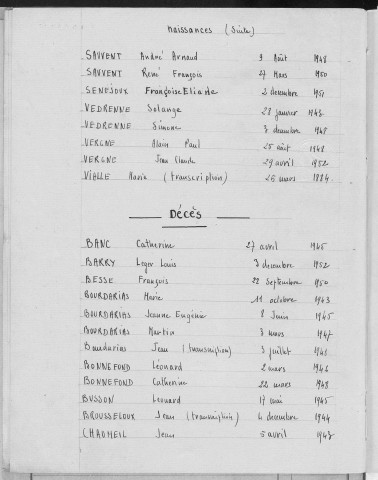 Naissances (Suite)
SAUVENT André Arnaud 9 Août 1948
SAUVENT René François 27 Mars 1950
SENEJOUX Françoise Eliade 2 décembre 1951
VEDRENNE Solange 28 janvier 1943
VEDRENNE Simone 7 décembre 1948
VERGNE Alain Paul 25 août 1948
VERGNE Jean Claude 29 avril 1952
VIALLE Marie (transcription) 26 mars 1884
— Décès —
BANC Catherine 27 avril 1945
BARRY Leger Louis 7 décembre 1952
BESSE François 22 Septembre 1950
BOURDARIAS Marie 11 octobre 1943
BOURDARIAS Jeanne Eugénie 8 Juin 1945
BOURDARIAS Martin 3 mars 1947
Bourdarias Jean (transcription) 3 juillet
BONNEFOND Léonard 2 mars
BONNEFOND Catherine 22 mars 1948
BUSSON Leonard 17 mai 1945
BROUSSELOUX Jean (transcription) 4 décembre 1944
CHAUMEIL Jean 5 avril 1943